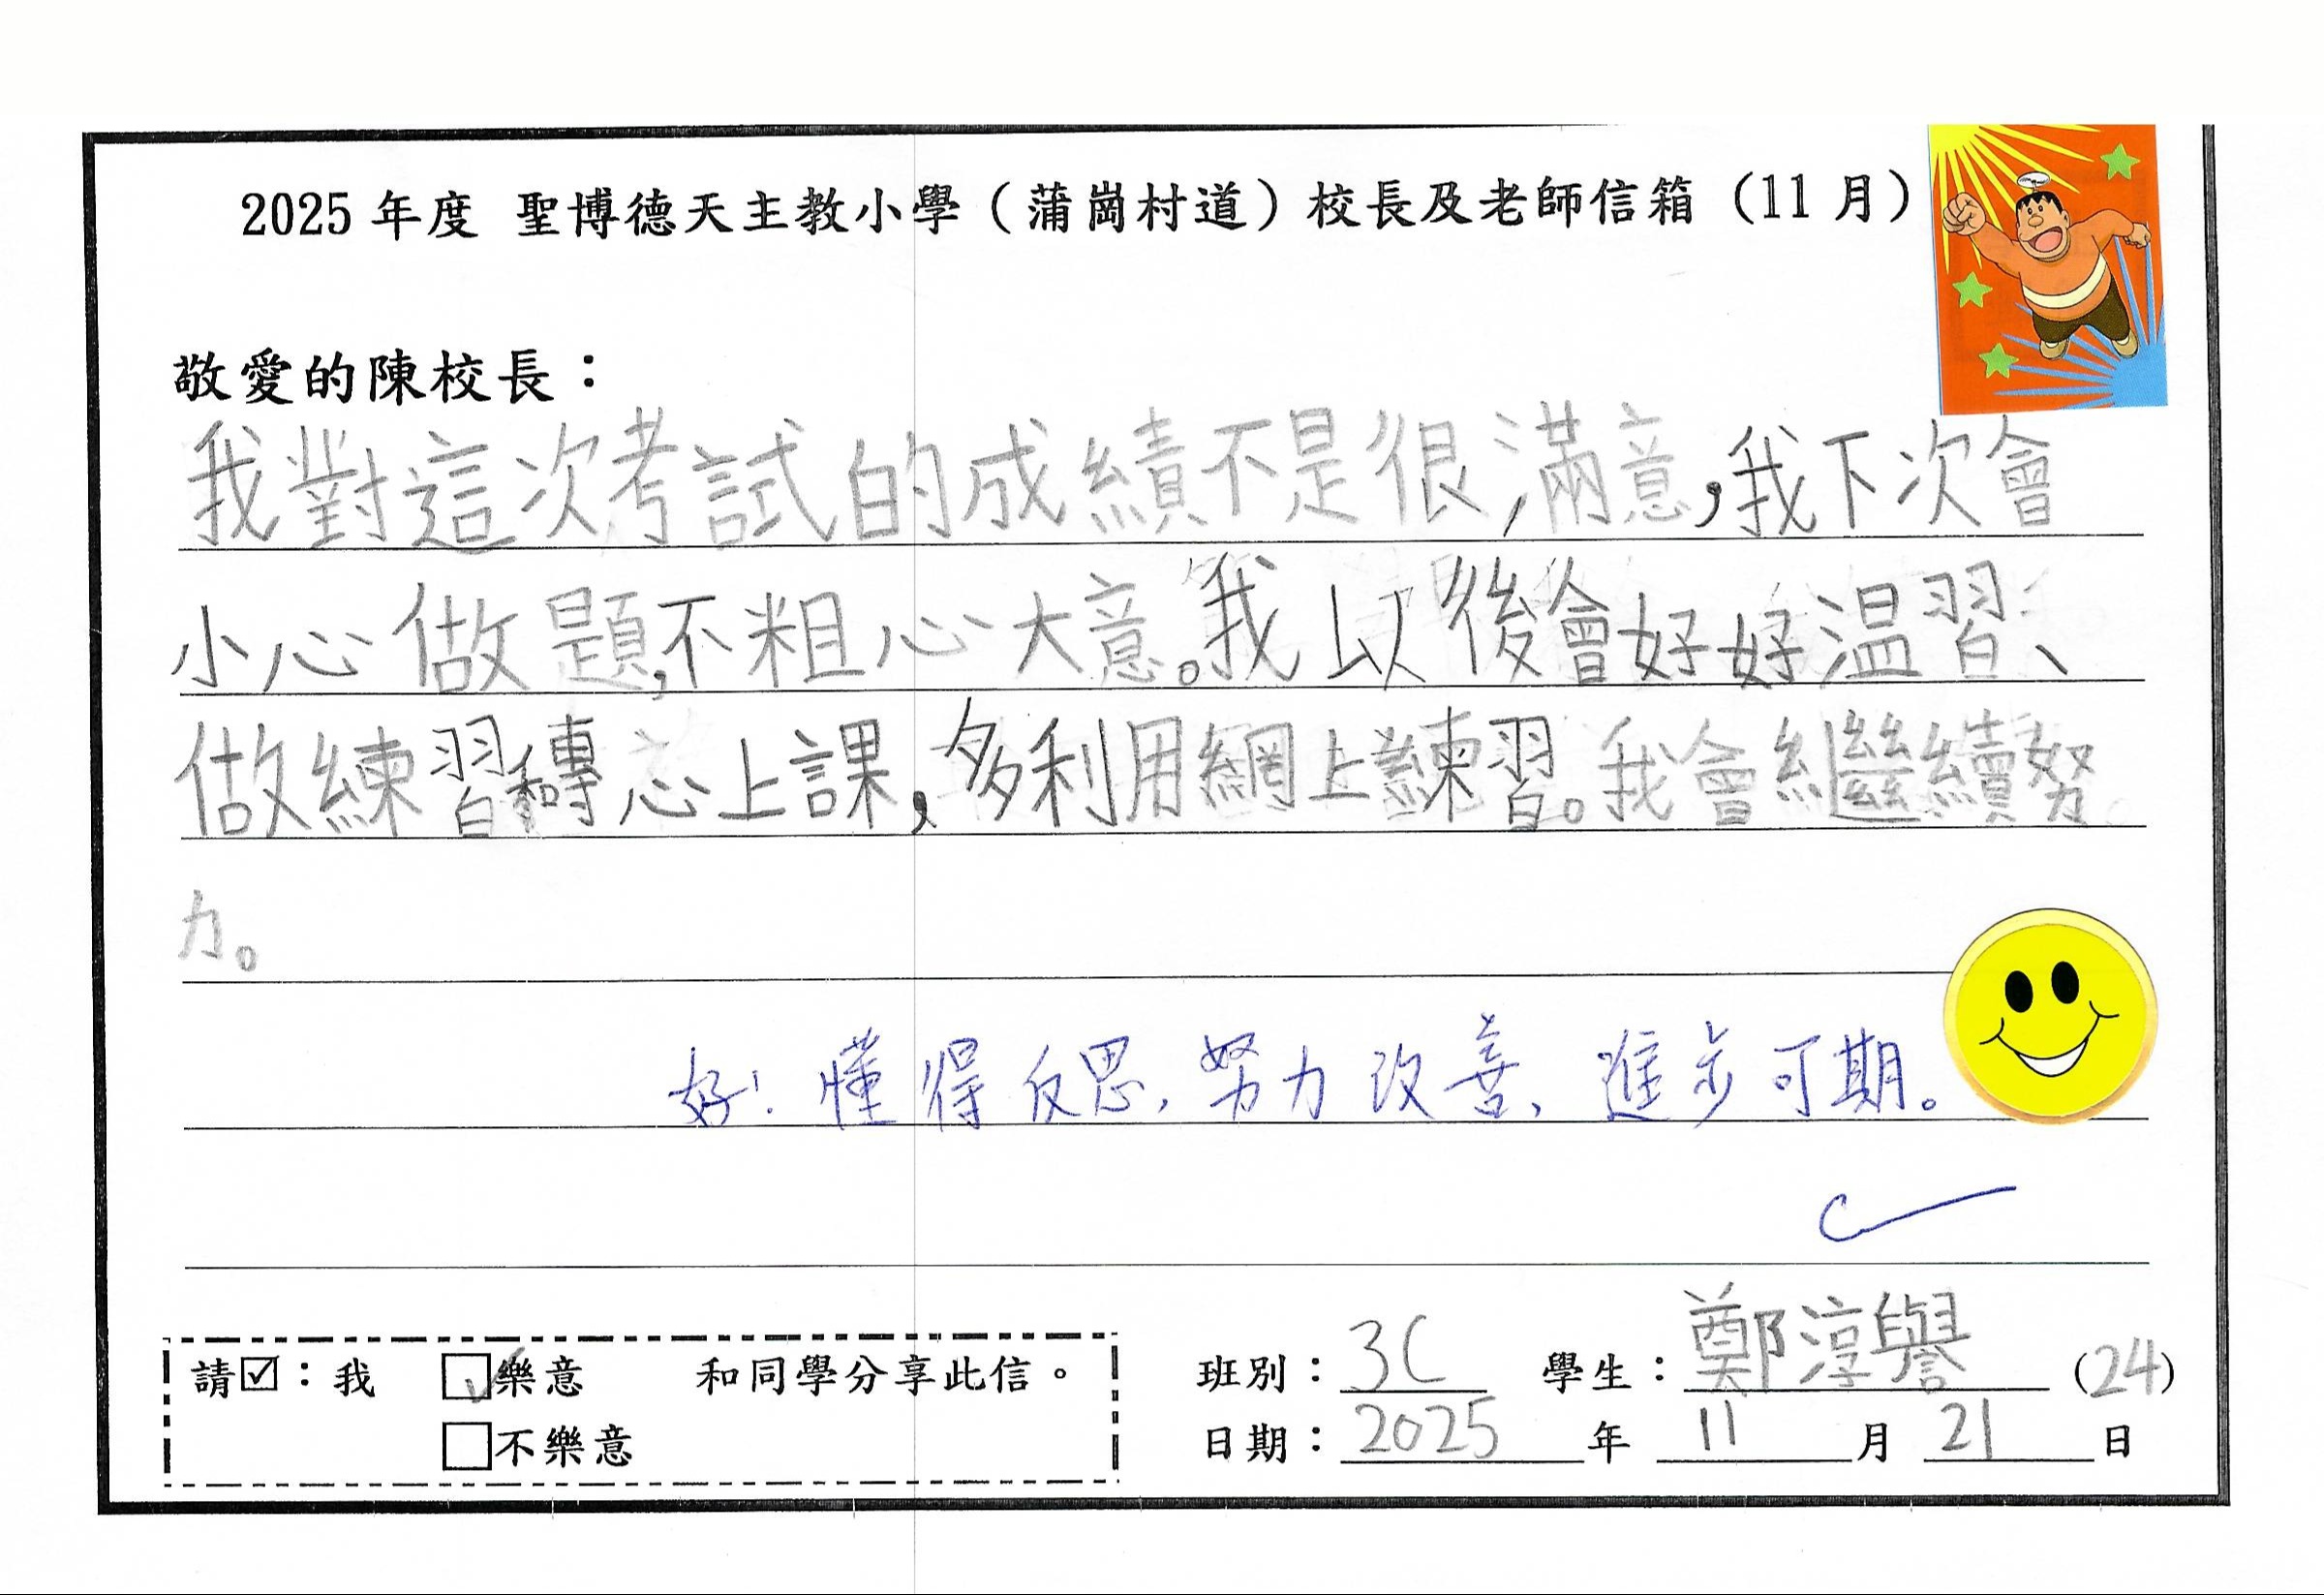 2025 年度 聖博德天主教小學（蒲崗村道）校長及老師信箱（11 月）
敬愛的陳校長：
我對這次考試的成績不是很滿意，我下次會
小心做題，不粗心大意。我以後會好好溫習、
做練習和專心上課，多利用網上練習。我會繼續努
力。
好！懂得反思，努力改善，進步可期。
請☑：我 樂意 和同學分享此信。
不樂意
班別：3C 學生：鄭淳譽 (24)
日期：2025 年 11 月 21 日